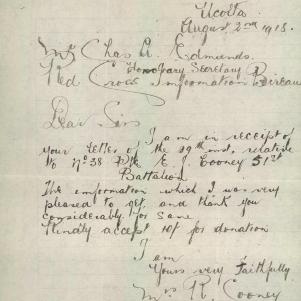 Ucolta
August 2nd 1918.
Mr Chas A Edmunds.
Honorary Secretary
Red Cross Information Bureau
Dear Sir
I am in receipt of
your letter of the 29th inst, relative
to No 38 Pte E. J. Cooney 51st
Battalion
The information which I was very
pleased to get, and thank you
considerably for same
Kindly accept 10/- for donation
I am
Yours very faithfully
Mrs R. Cooney